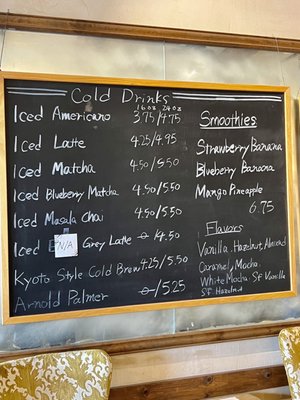 Cold Drinks
16oz 24oz
Iced Americano 3.75/4.75
Iced Latte 4.25/4.95
Iced Matcha 4.50/5.50
Iced Blueberry Matcha 4.50/5.50
Iced Masala Chai 4.50/5.50
Iced E N/A Grey Latte 4.50
Kyoto Style Cold Brew 4.25/5.50
Arnold Palmer /5.25
Smoothies
Strawberry Banana
Blueberry Banana
Mango Pineapple
6.75
Flavors
Vanilla, Hazelnut, Almond
Caramel, Mocha
White Mocha, SF Vanilla
SF Hazelnut